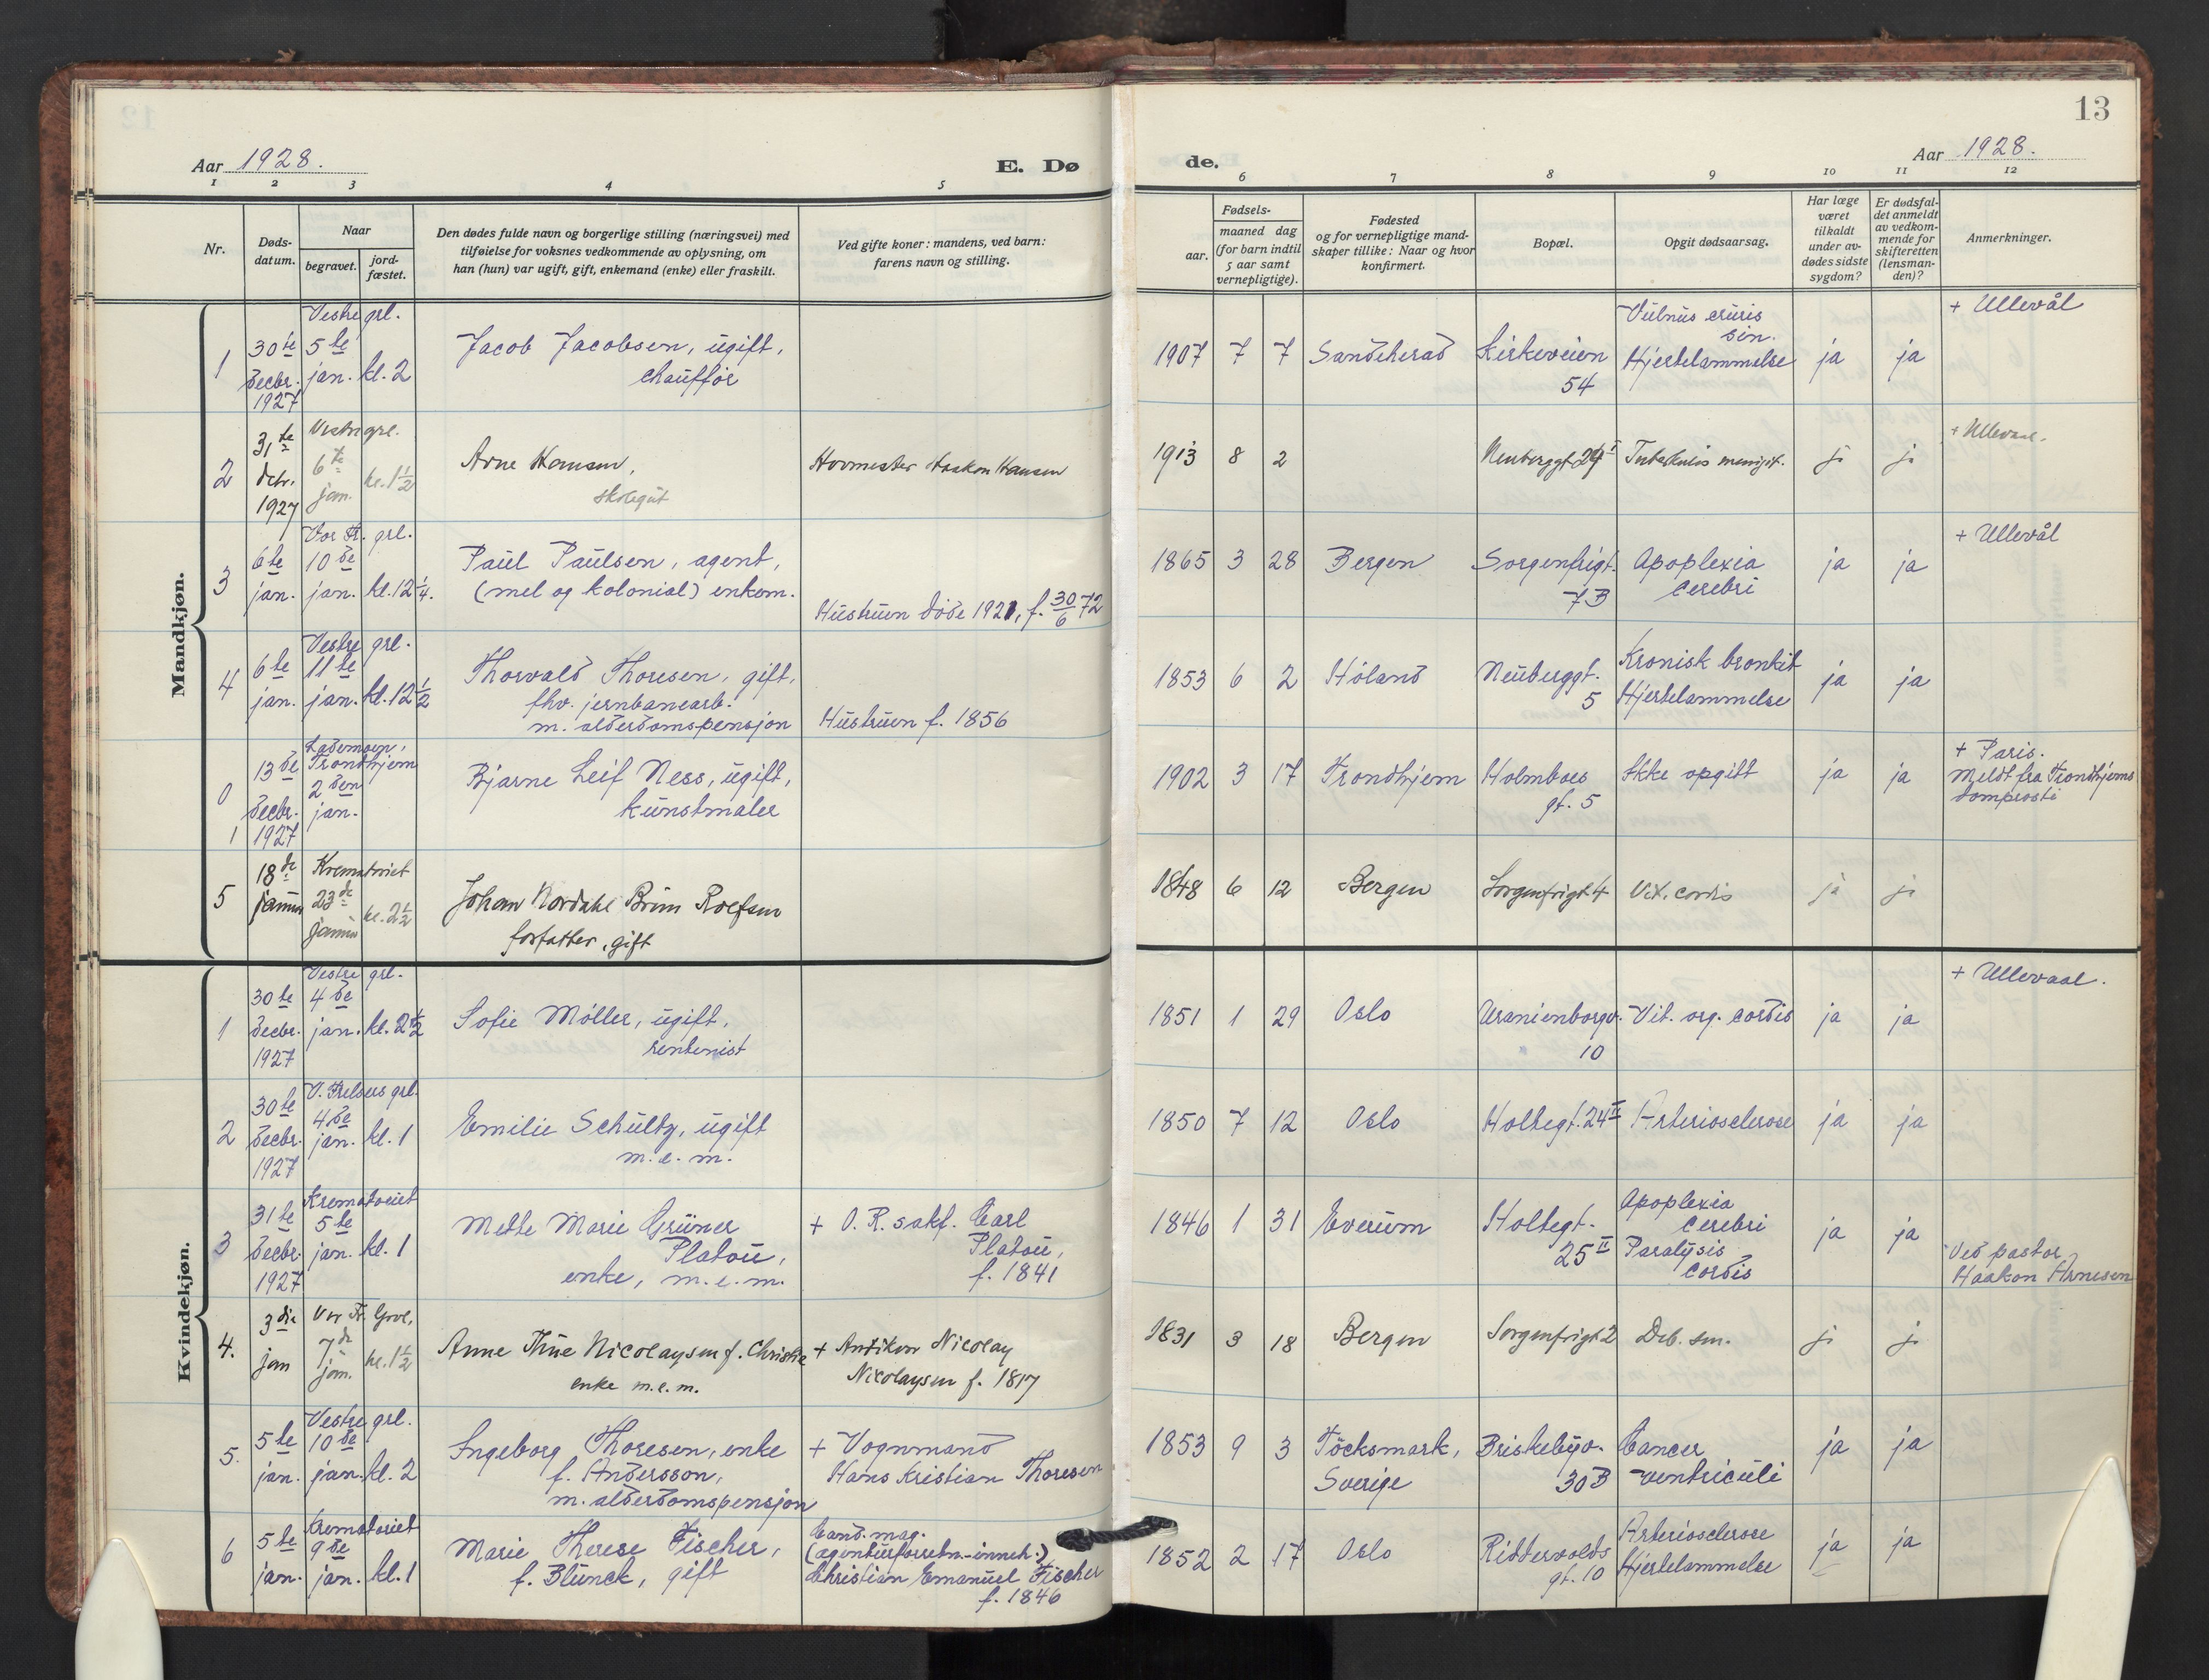 13
Aar 1928.
E. Dø
de.
Aar 1928.
1 2 3 4 5
6 7 8 9 10 11 12
Nr.
Døds-
datum.
Naar
begravet.
jord-
fæstet.
Den dødes fulde navn og borgerlige stilling (næringsvei) med
tilføielse for voksnes vedkommende av oplysning, om
han (hun) var ugift, gift, enkemand (enke) eller fraskilt.
Ved gifte koner: mandens, ved barn:
farens navn og stilling.
Fødsels-
aar.
maaned dag
(for barn indtil
5 aar samt
vernepligtige).
Fødested
og for vernepligtige mand-
skaper tillike: Naar og hvor
konfirmert.
Bopæl.
Opgit dødsaarsag.
Har læge
været
tilkaldt
under av-
dødes sidste
sygdom?
Er dødsfal-
det anmeldt
av vedkom-
mende for
skifteretten
(lensman-
den)?
Anmerkninger.
Mandkjøn.
1
30te
decbr.
1927
Vestre grl.
5te
jan. kl. 2
Jacob Jacobsen, ugift,
chauffør
1907 7 7 Sandeherad
Kirkeveien
54
Vulnus cruris
sin.
Hjertelammelse
ja ja
+ Ullevål
2
31te
decbr.
1927
Vestre grl.
6te
jan. kl. 1½
Arne Hansen,
skolegut
Hovmester Haakon Hansen
1913 8 2
Neuberggt 24 I
Tuberkuløs meningit.
ja ja
+ Ullevaal.
3
6te
jan.
Vor Fr. grl.
10de
jan. kl. 12¼.
Paul Paulsen, agent,
(mel og kolonial) enkem.
Hustruen døde 1921, f. 30/6 72
1865 3 28 Bergen
Sorgenfrigt.
7B
Apoplexia
cerebri
ja ja
+ Ullevål
4
6te
jan.
Vestre grl.
11te
jan. kl. 12½
Thorvald Thoresen, gift,
fhv. jernbanearb.
m. alderdomspensjon
Hustruen f. 1856
1853 6 2 Høland
Neuberggt.
5
Kronisk bronkit
Hjertelammelse
ja ja
0
1
13de
decbr.
1927
Lademoen,
Trondhjem
2den
jan.
Bjarne Leif Ness, ugift,
kunstmaler
1902 3 17 Trondhjem
Holmboes
gt. 5
Ikke opgitt
ja ja
+ Paris.
Meldt fra Trondhjems
domprosti
5
18de
januar
Krematoriet
23de
januar kl. 2½
Johan Nordahl Brun Rolfsen
forfatter, gift
1848 6 12 Bergen
Sorgenfrigt 4
Vit. cordis
ja ja
Kvindekjøn.
1
30te
decbr.
1927
Vestre grl.
4de
jan. kl. 2½
Sofie Møller, ugift,
rentenist
1851 1 29 Oslo
Uranienborgv.
10
Vit. org. cordis
ja ja
+ Ullevaal.
2
30te
decbr.
1927
V. Frelsers grl.
4de
jan. kl. 1
Emilie Schultz, ugift
m.e.m.
1850 7 12 Oslo
Holtegt. 24 II
Arteriosclerose
ja ja
3
31te
decbr.
1927
Krematoriet
5te
jan. kl. 1
Mette Marie Grüner
Platou,
enke, m.e.m.
+ O.R.sakf. Carl
Platou,
f. 1841
1846 1 31 Everum
Holtegt.
25 II
Apoplexia
cerebri
Paralysis
cordis
ja ja
Ved pastor
Haakon Arnesen
4.
3die
jan
Vor Fr. Grvl.
7de
jan. kl. 1½
Anne Thue Nicolaysen f. Christie
enke m.e.m.
+ Antikvar Nicolay
Nicolaysen f. 1817
1831 3 18 Bergen
Sorgenfrigt 2
Deb. sen.
ja ja
5.
5te
jan.
Vestre grl.
10de
jan. kl. 2
Ingeborg Thoresen, enke
f. Andersson,
m. alderdomspensjon
+ Vognmand
Hans Kristian Thoresen
1853 9 3
Töcksmark,
Sverige
Briskebyv.
30B
Cancer
ventriculi
ja ja
6
5te
jan.
Krematoriet
9de
jan. kl. 1
Marie Therese Fischer,
f. Blunck, gift
Cand. mag.
(agenturforretn.-inneh.)
Christian Emanuel Fischer
f. 1846
1852 2 17 Oslo
Riddervolds
gt. 10
Arteriosclerose
Hjertelammelse
ja ja